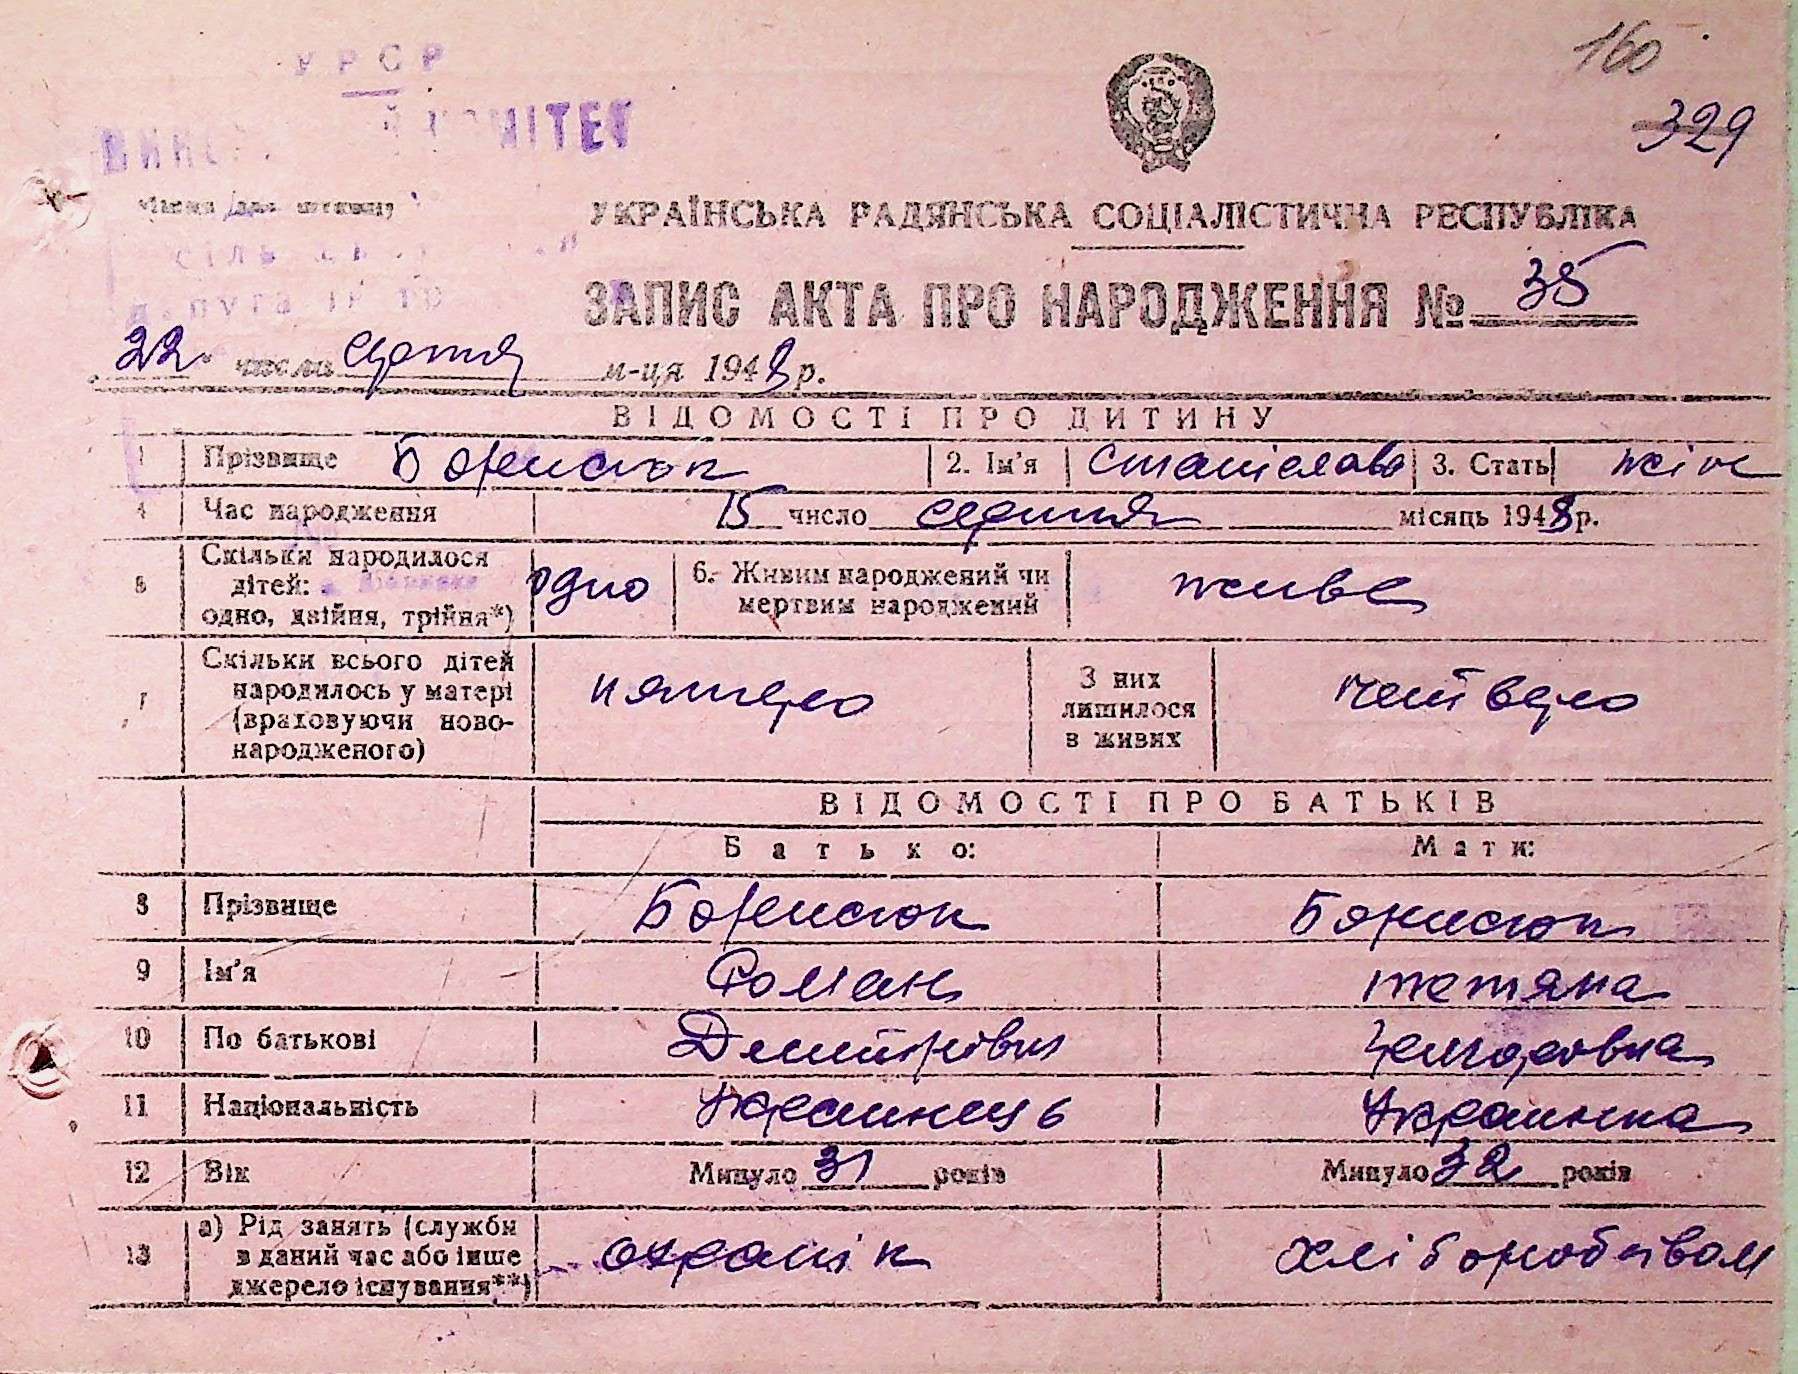 160
329
УРСР
КОМІТЕТ
УКРАЇНСЬКА РАДЯНСЬКА СОЦІАЛІСТИЧНА РЕСПУБЛІКА
ЗАПИС АКТА ПРО НАРОДЖЕННЯ № 35
22 числа серпня м-ця 1948 р.
ВІДОМОСТІ ПРО ДИТИНУ
1 Прізвище Борисюк 2. Ім'я Станіслава 3. Стать жін
4 Час народження 15 число серпня місяць 1948 р.
5 Скільки народилося дітей: одно, двійня, трійня*) одно 6. Живим народжений чи мертвим народжений живе
7 Скільки всього дітей народилось у матері (враховуючи новонародженого) пятеро З них лишилося в живих четверо
ВІДОМОСТІ ПРО БАТЬКІВ
Батько: Мати:
8 Прізвище Борисюк Борисюк
9 Ім'я Роман Тетяна
10 По батькові Дмитрович
11 Національність Украинець Украинка
12 Вік Минуло 31 років Минуло 32 років
13 а) Рід занять (служби в даний час або інше джерело існування**) охранік хліборобством